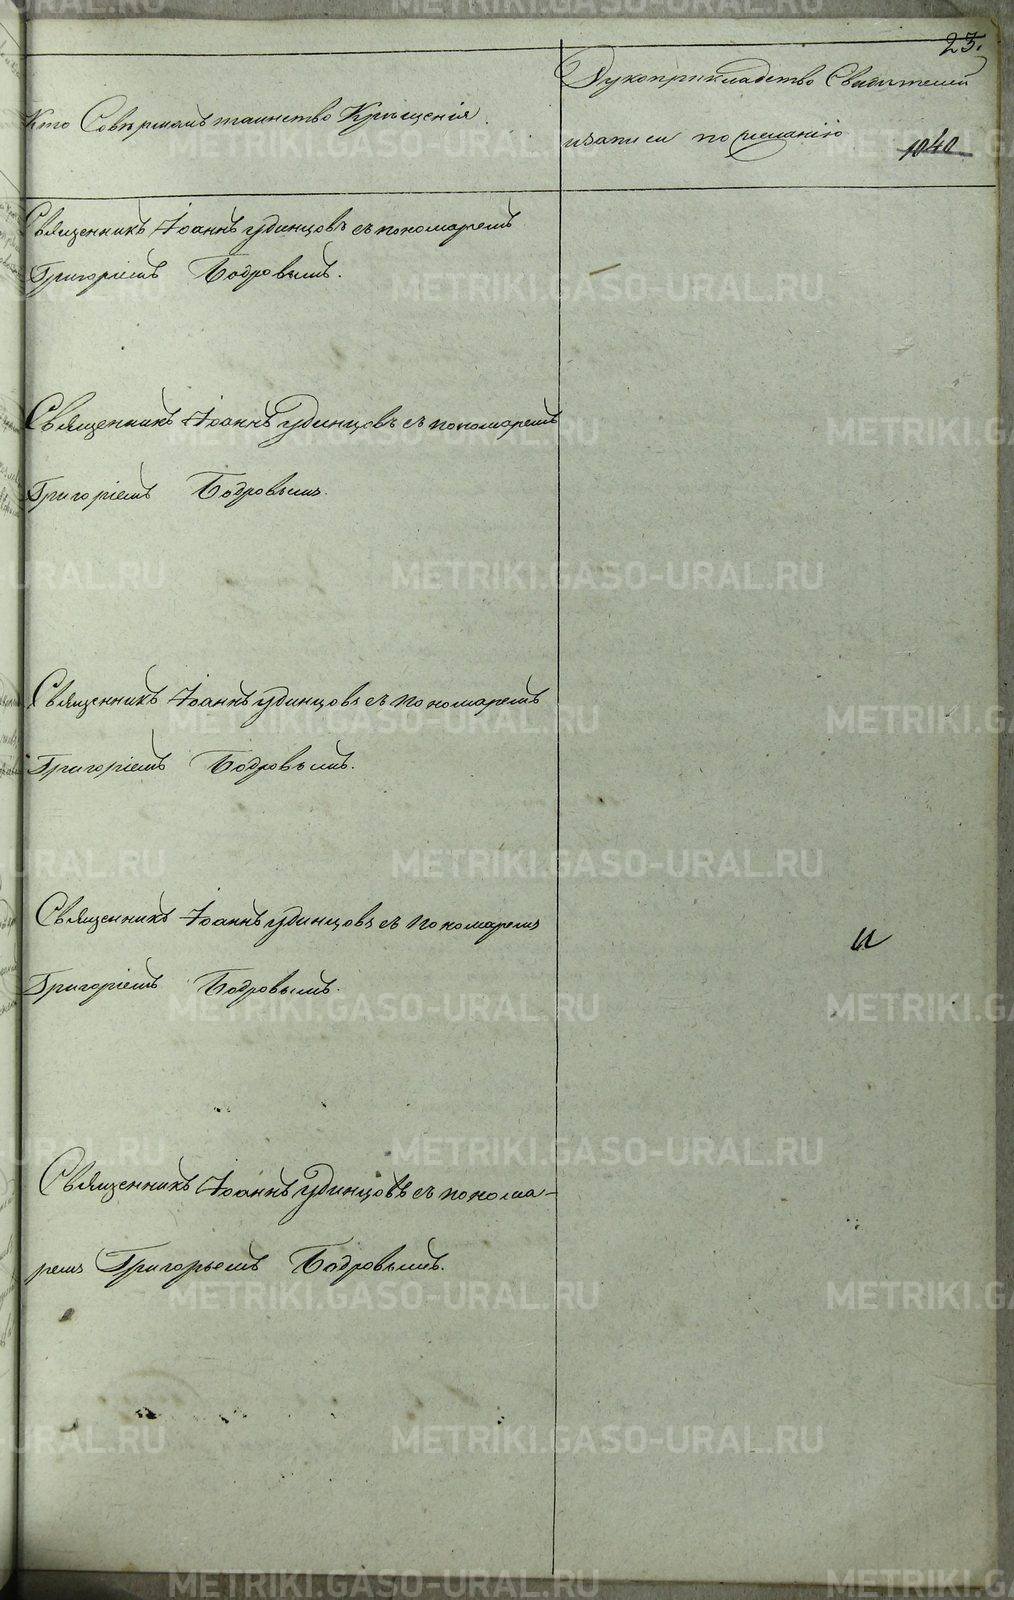 23.
Кто Совершалъ таинство Крещенія.
Рукоприкладство Свидѣтелей
записи по желанію
1040
Священникъ Іоаннъ Удинцовъ съ пономаремъ
Григоріемъ Бодровымъ.
Священникъ Іоаннъ Удинцовъ съ пономаремъ
Григоріемъ Бодровымъ.
Священникъ Іоаннъ Удинцовъ съ пономаремъ
Григоріемъ Бодровымъ.
Священникъ Іоаннъ Удинцовъ съ пономаремъ
Григоріемъ Бодровымъ.
Священникъ Іоаннъ Удинцовъ съ понома-
ремъ Григорьемъ Бодровымъ.
METRIKI.GASO-URAL.RU